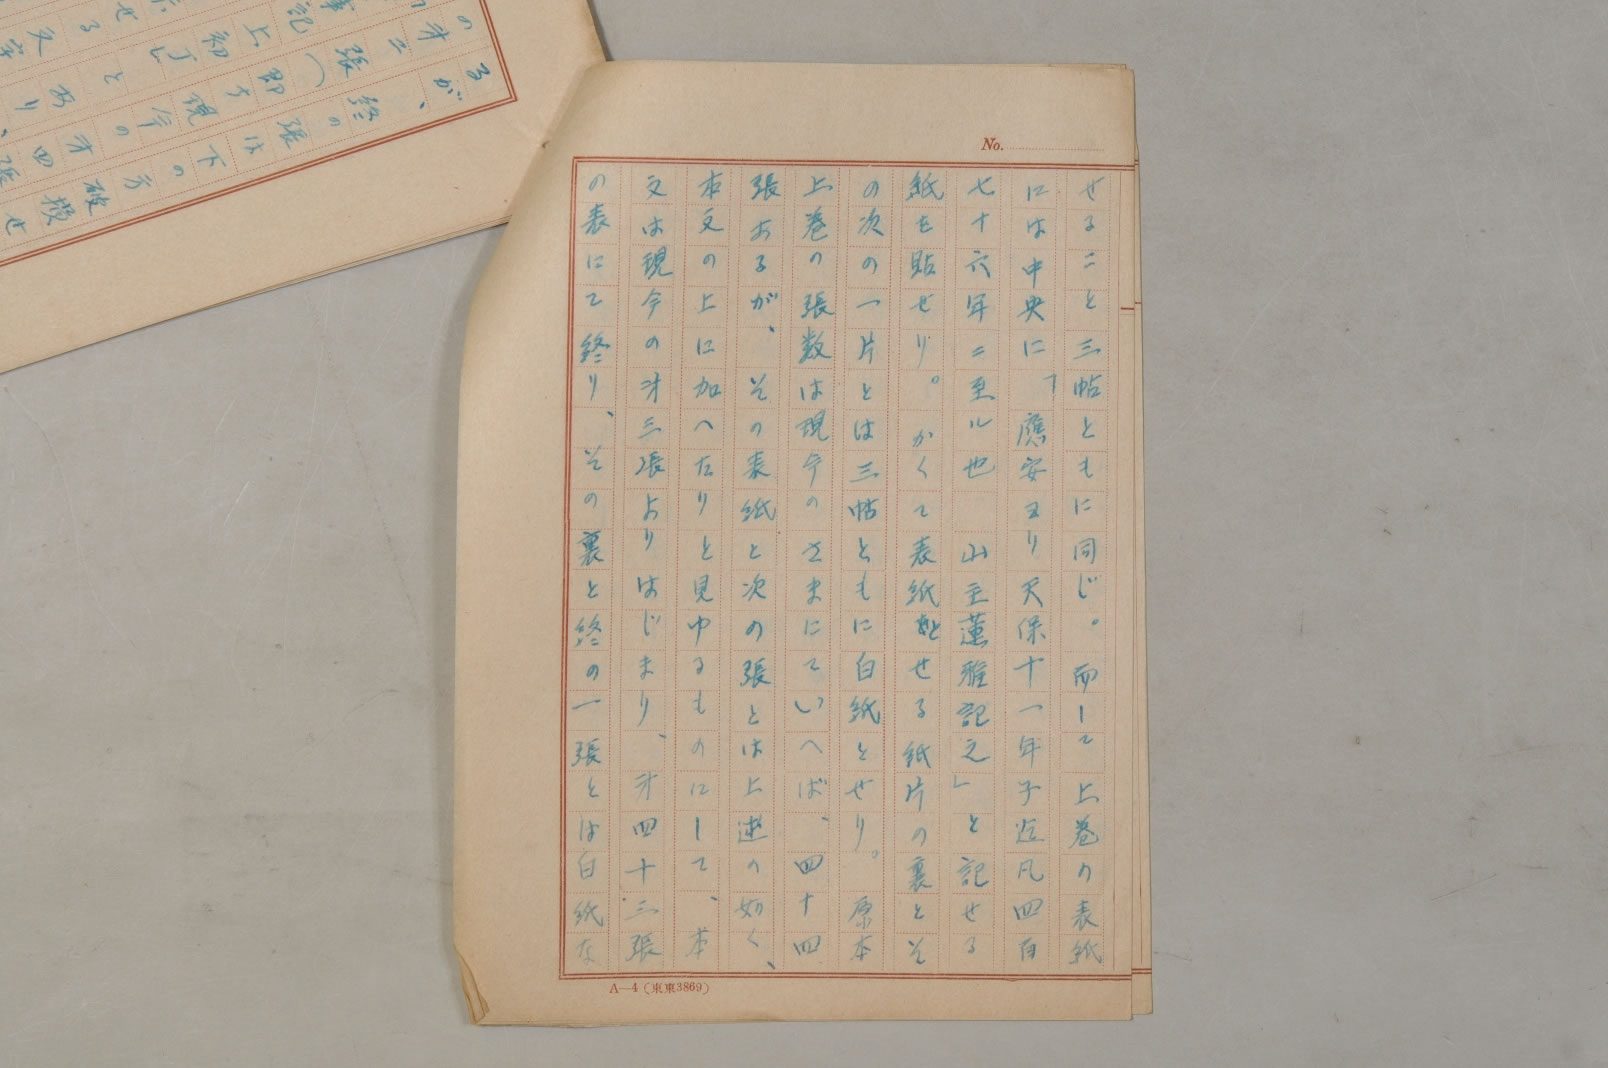 No.
せること三帖ともに同じ。而して上巻の表紙
には中央に「應安ヨリ天保十一年子迄凡四百
七十六年ニ至ル也 山主蓮雅記之」と記せる
紙を貼せり。かくて表紙とせる紙片の裏とそ
の次の一片とは三帖ともに白紙とせり。原本
上巻の張数は現今のさまにていへば、四十四
張あるが、その表紙と次の張とは上述の如く、
本文の上に加へたりと見ゆるものにして、本
文は現今の才三張よりはじまり、才四十三張
の表にて終り、その裏と終の一張とは白紙な
A—4(東東3869)
るが、終の張は下の方破損せ